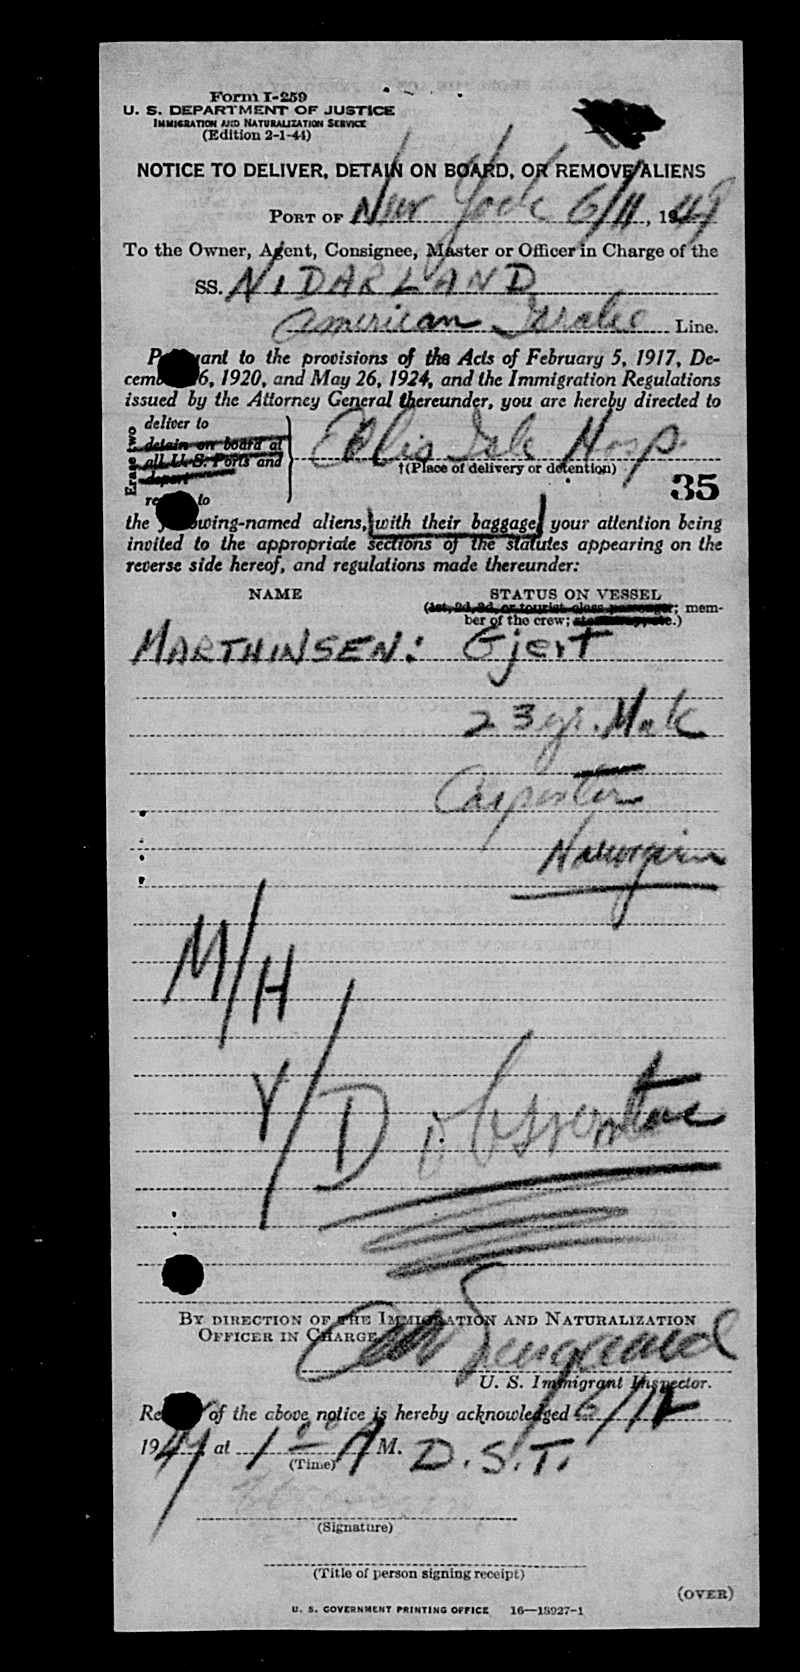 Form I-259
U. S. DEPARTMENT OF JUSTICE
IMMIGRATION AND NATURALIZATION SERVICE
(Edition 2-1-44)
NOTICE TO DELIVER, DETAIN ON BOARD, OR REMOVE ALIENS
PORT OF New York 6/11, 1949
To the Owner, Agent, Consignee, Master or Officer in Charge of the
SS. NIDARLAND
American Israli Line.
P uant to the provisions of the Acts of February 5, 1917, De-
cem 6, 1920, and May 26, 1924, and the Immigration Regulations
issued by the Attorney General thereunder, you are hereby directed to
Erase two
deliver to
detain on board at
all U. S. Ports and
deport
re to
Ellis Isle Hosp.
†(Place of delivery or detention)
35
the wing-named aliens, with their baggage, your attention being
invited to the appropriate sections of the statutes appearing on the
reverse side hereof, and regulations made thereunder:
NAME STATUS ON VESSEL
(1st, 2d, 3d, or tourist class passenger; mem-
ber of the crew; .)
MARTHINSEN: Gjert
23 yr. Male
Carpenter
Norwegian
M/H
V/D
BY DIRECTION OF THE IMMIGRATION AND NATURALIZATION
OFFICER IN CHARGE
U. S. Immigrant Inspector.
Re of the above notice is hereby acknowledged 6/12
1949 at 1 00 A M. D.S.T.
(Time)
(Signature)
(Title of person signing receipt)
(OVER)
U. S. GOVERNMENT PRINTING OFFICE 16—18927-1